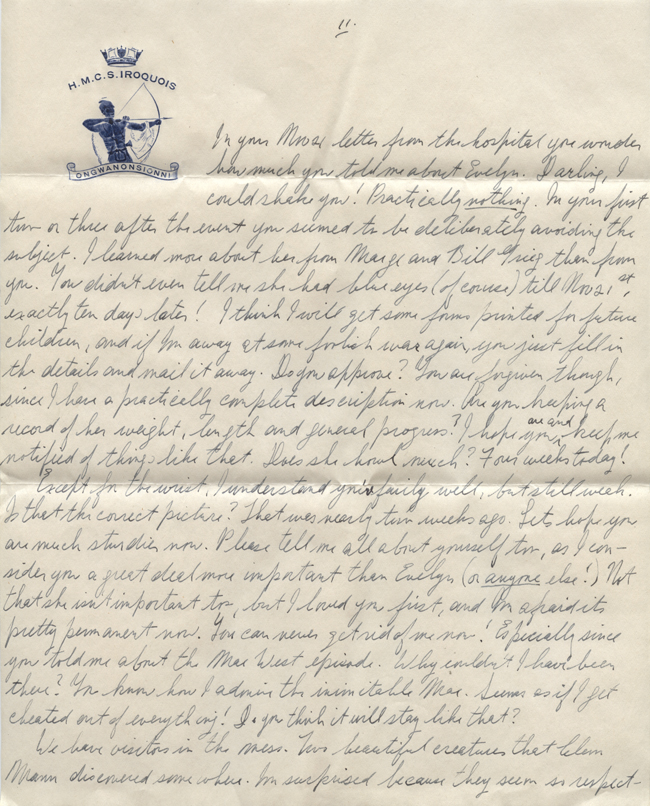 11.
H.M.C.S. IROQUOIS
ONGWANONSIONNI
In your Nov 21 letter from the hospital you wonder
how much you told me about Evelyn. Darling, I
could shake you! Practically nothing. In your first
two or three after the event you seemed to be deliberately avoiding the
subject. I learned more about her from Marge and Bill Grieg than from
you. You didn't even tell me she had blue eyes (of course) till Nov 21st,
exactly ten days later! I think I will get some forms printed for future
children, and if I'm away at some foolish war again, you just fill in
the details and mail it away. Do you approve? You are forgiven though,
since I have a practically complete description now. Are you keeping a
record of her weight, length and general progress? I hope you are and keep me
notified of things like that. Does she howl much? Four weeks today!
Except for the wrist, I understand you're fairly well, but still weak.
Is that the correct picture? That was nearly two weeks ago. Lets hope you
are much sturdier now. Please tell me all about yourself too, as I con-
sider you a great deal more important than Evelyn (or anyone else!) Not
that she isn't important too, but I loved you first, and I'm afraid its
pretty permanent now. You can never get rid of me now! Especially since
you told me about the Mae West episode. Why couldn't I have been
there? You know how I admire the inimitable Mae. Seems as if I get
cheated out of everything! Do you think it will stay like that?
We have visitors in the mess. Two beautiful creatures that Clem
Mann discovered somewhere. I'm surprised because they seem so respect-